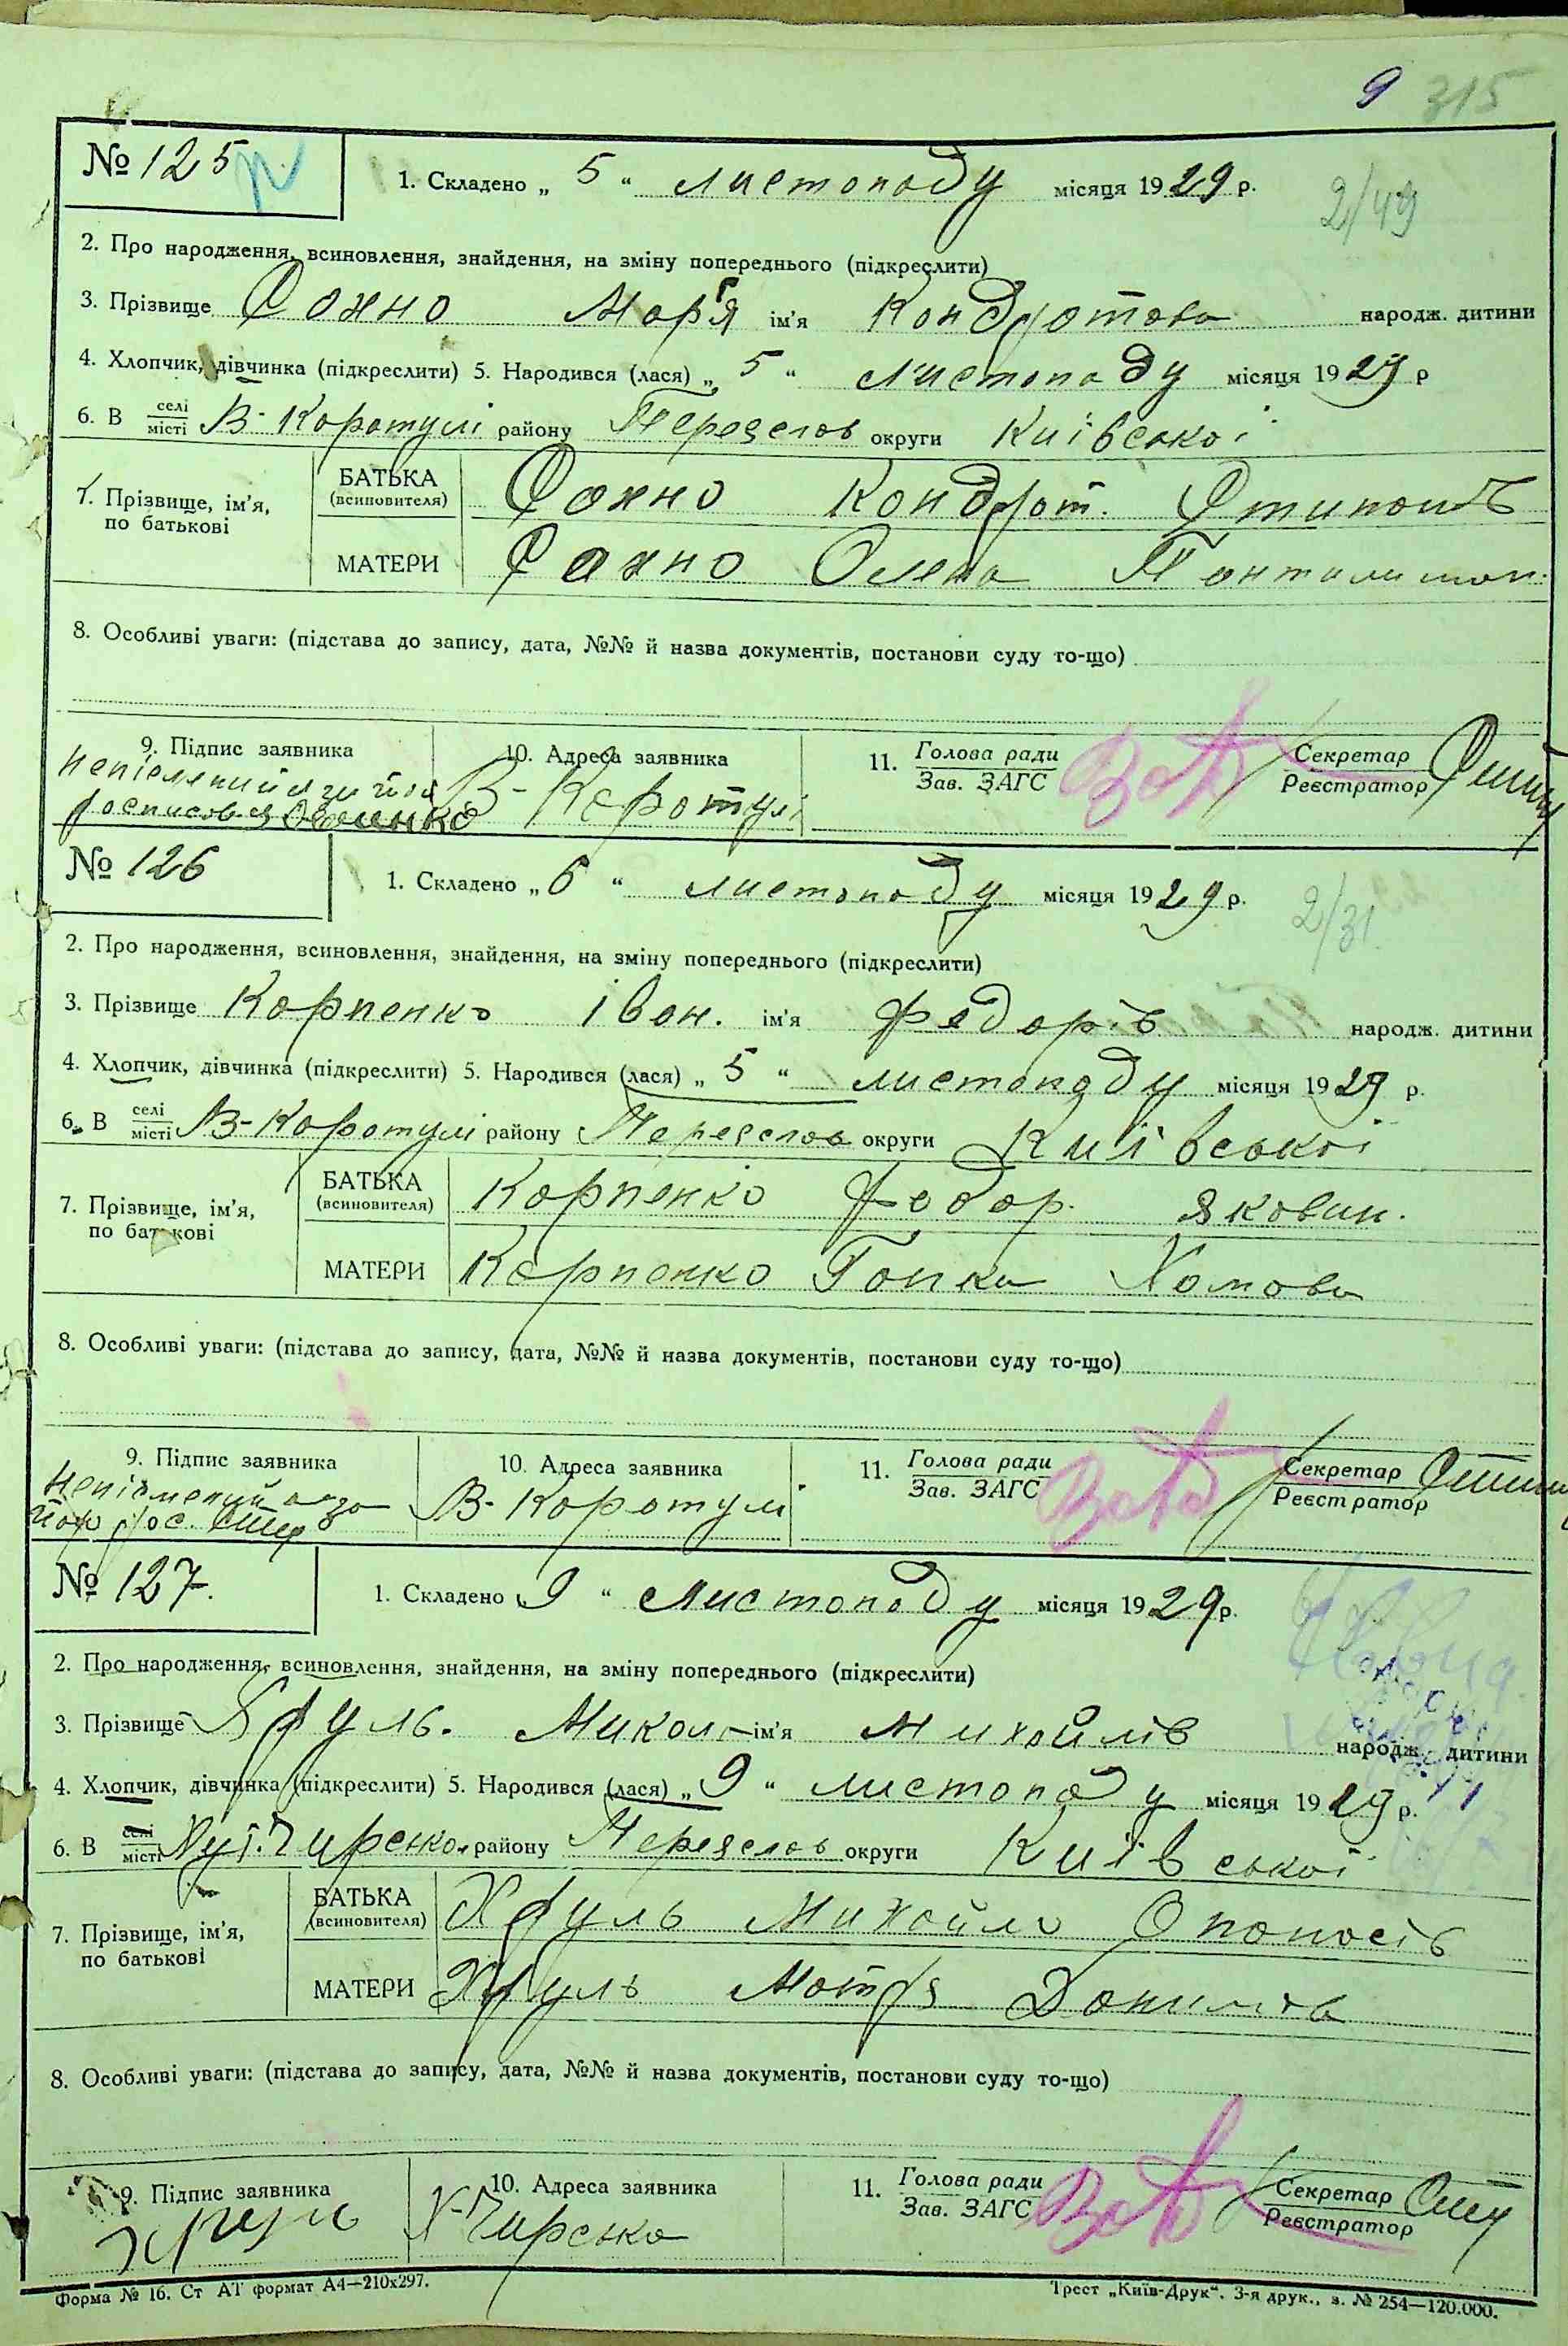 9 315
№ 125
1. Складено „ 5 “ листопаду місяця 1929 р.
2/49
2. Про народження, всиновлення, знайдення, на зміну попереднього (підкреслити)
3. Прізвище Сахно Мар'я ім'я Кондратова народж. дитини
4. Хлопчик, дівчинка (підкреслити) 5. Народився (лася) „ 5 “ листопаду місяця 1929 р
6. В селі місті В-Каратулі району Переяслав округи Київської
7. Прізвище, ім'я, по батькові
БАТЬКА (всиновителя) Сахно Кондрат.
МАТЕРИ Сахно Олена Пантилимон.
8. Особливі уваги: (підстава до запису, дата, №№ й назва документів, постанови суду то-що)
9. Підпис заявника 10. Адреса заявника 11. Голова ради Зав. ЗАГС Секретар Реєстратор
В-Каратулі
№ 126
1. Складено „ 6 “ листопаду місяця 1929 р.
2/31
2. Про народження, всиновлення, знайдення, на зміну попереднього (підкреслити)
3. Прізвище Карпенко Іван. ім'я Федорів народж. дитини
4. Хлопчик, дівчинка (підкреслити) 5. Народився (лася) „ 5 “ листопаду місяця 1929 р.
6. В селі місті В-Каратулі району Переяслав округи Київської
7. Прізвище, ім'я, по батькові
БАТЬКА (всиновителя) Карпенко Федор. Якович.
МАТЕРИ Карпенко Ганка Хомова
8. Особливі уваги: (підстава до запису, дата, №№ й назва документів, постанови суду то-що)
9. Підпис заявника 10. Адреса заявника 11. Голова ради Зав. ЗАГС Секретар Реєстратор
В-Каратулі
№ 127.
1. Складено „ 9 “ листопаду місяця 1929 р.
2. Про народження, всиновлення, знайдення, на зміну попереднього (підкреслити)
3. Прізвище Хруль. Микола ім'я Михайлів народж. дитини
4. Хлопчик, дівчинка (підкреслити) 5. Народився (лася) „ 9 “ листопаду місяця 1929 р.
6. В селі місті Хут. Чирсько району Переяслав округи Київської
7. Прізвище, ім'я, по батькові
БАТЬКА (всиновителя) Хруль Михайло Опанасів
МАТЕРИ Хруль Мотря Данилова
8. Особливі уваги: (підстава до запису, дата, №№ й назва документів, постанови суду то-що)
9. Підпис заявника 10. Адреса заявника 11. Голова ради Зав. ЗАГС Секретар Реєстратор
Хруль Х-Чирсько
Форма № 16. Ст АТ формат А4—210х297. Трест „Київ-Друк“. 3-я друк., з. № 254—120.000.